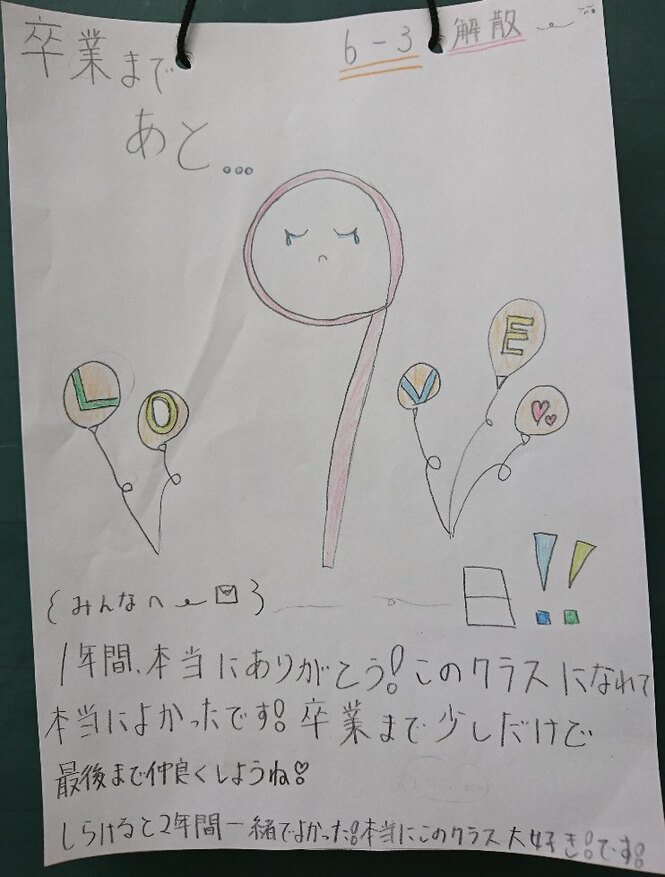 卒業まで
6-3 解散
あと...
9
L O V E
日!!
{みんなへ}
1年間、本当にありがとう!このクラスになれて
本当によかったです!卒業まで少しだけで
最後まで仲良くしようね!
しらけると2年間一緒でよかった!本当にこのクラス大好き!です!